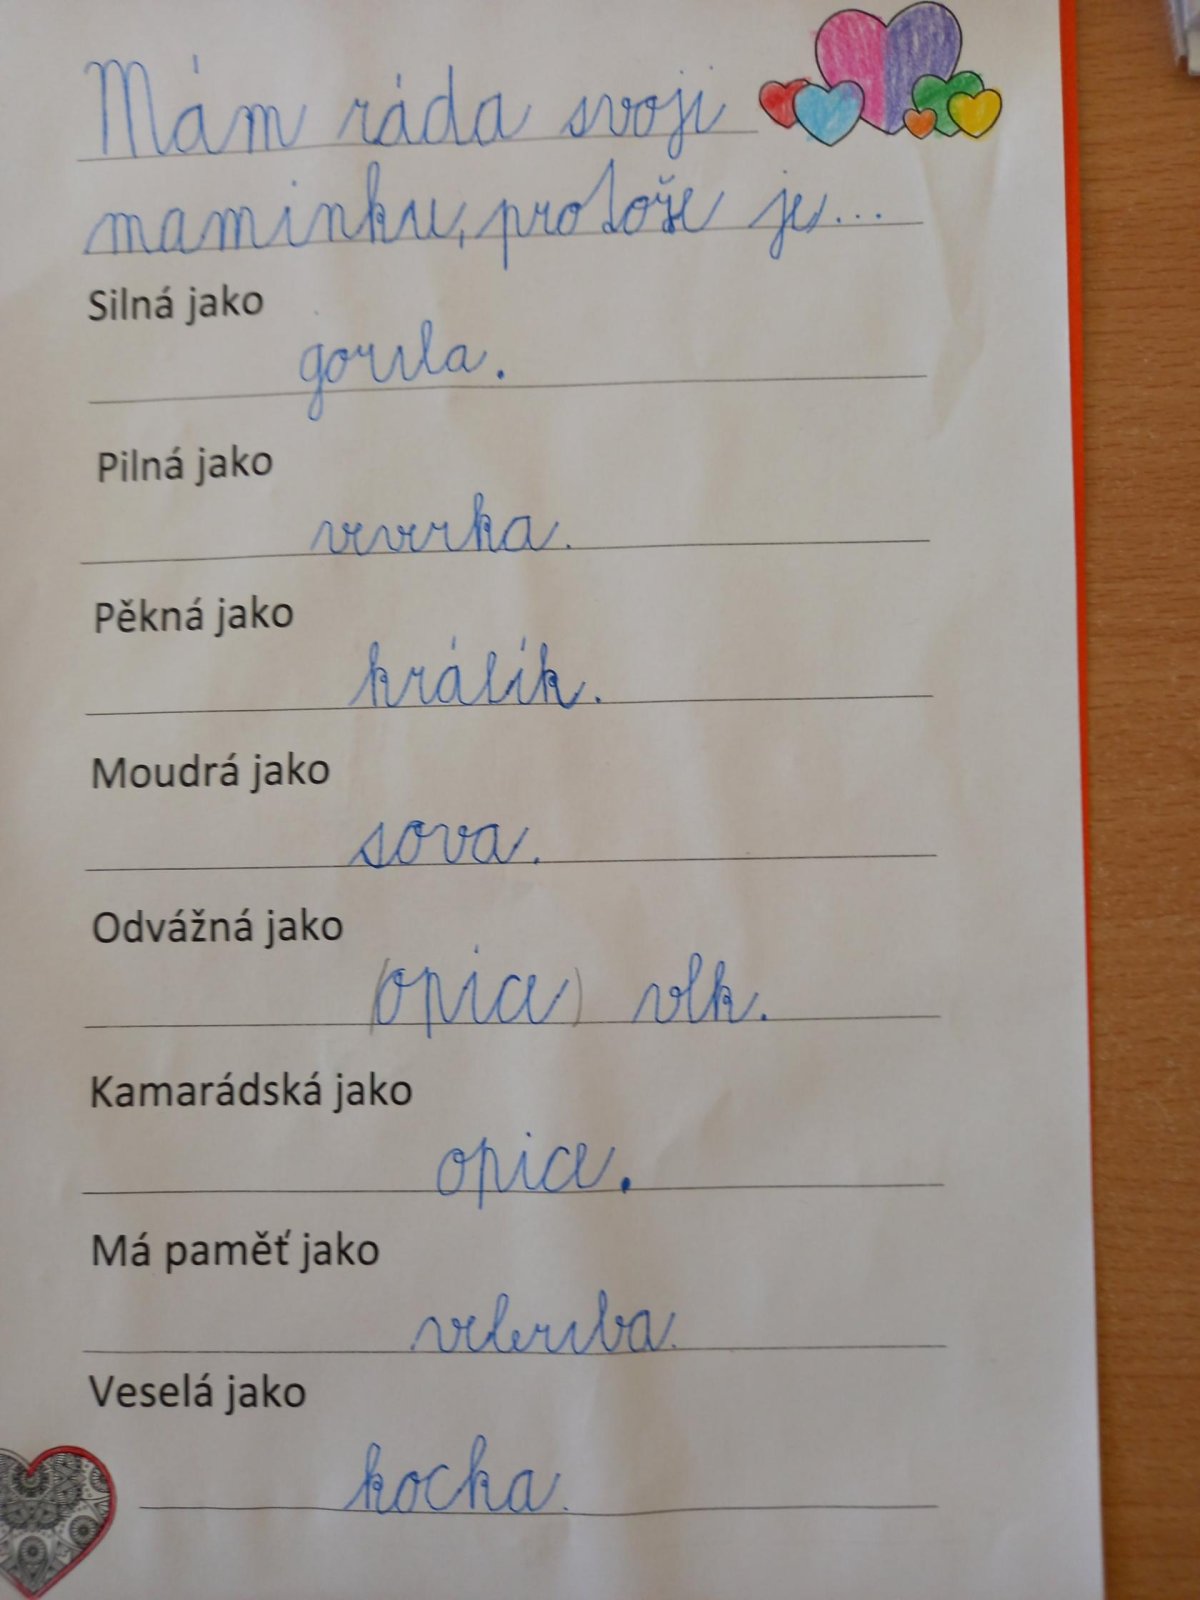 Mám ráda svoji
maminku, protože je...
Silná jako
gorila.
Pilná jako
veverka.
Pěkná jako
králík.
Moudrá jako
sova.
Odvážná jako
(opice) vlk.
Kamarádská jako
opice.
Má paměť jako
velryba.
Veselá jako
kočka.